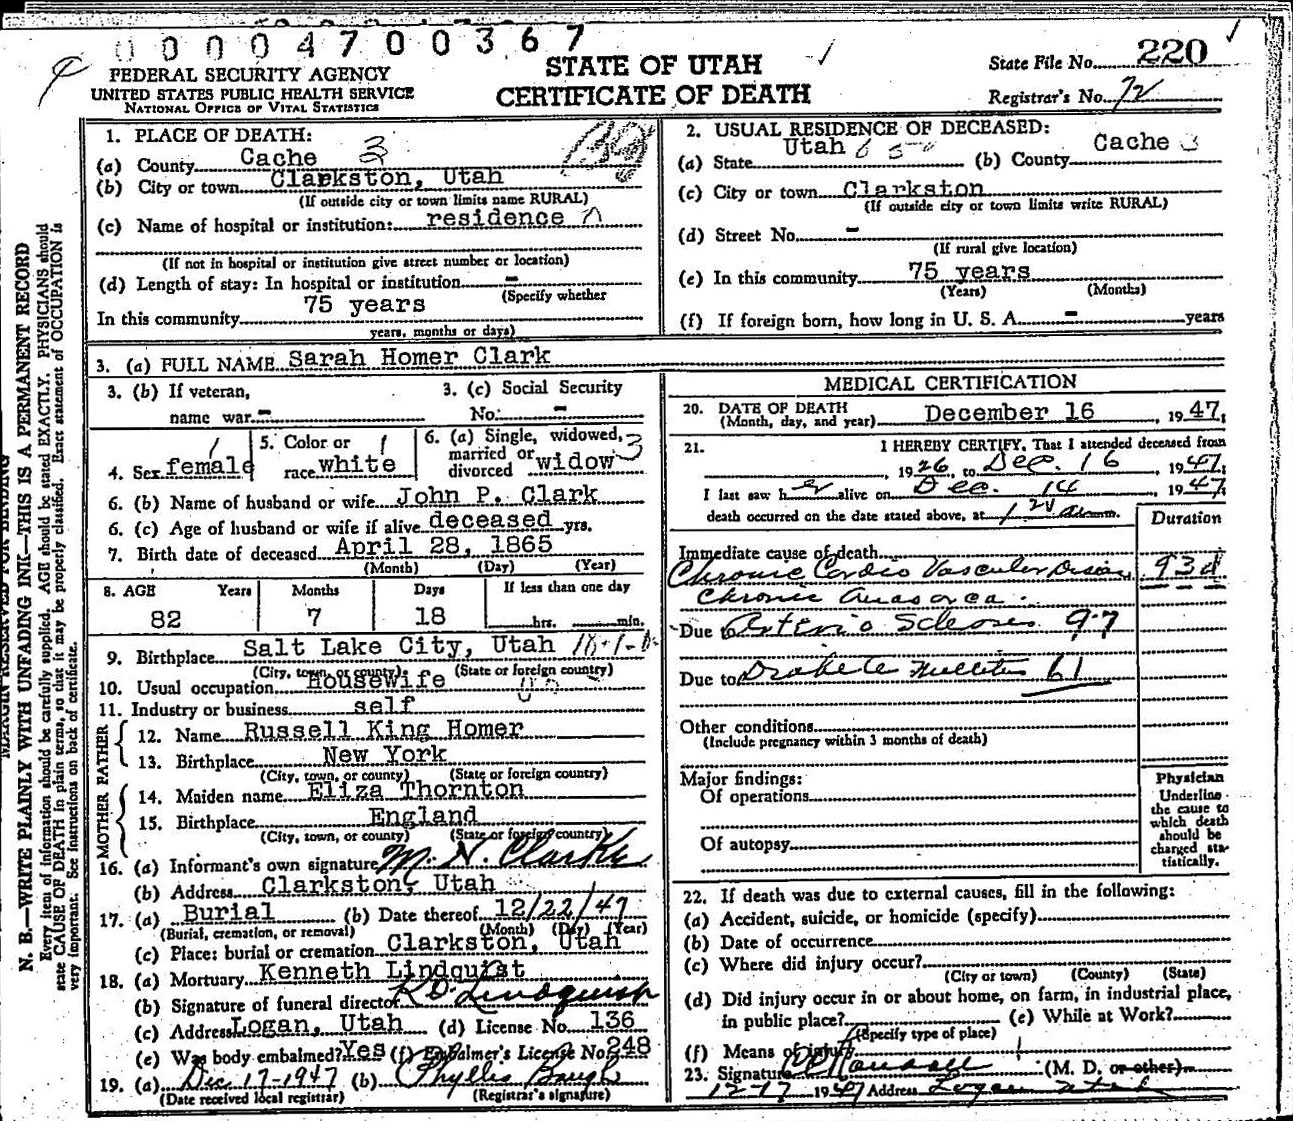 00004700367
FEDERAL SECURITY AGENCY
UNITED STATES PUBLIC HEALTH SERVICE
NATIONAL OFFICE OF VITAL STATISTICS
STATE OF UTAH
CERTIFICATE OF DEATH
State File No. 220
Registrar's No. 72
N. B.—WRITE PLAINLY WITH UNFADING INK—THIS IS A PERMANENT RECORD
Every item of information should be carefully supplied. AGE should be stated EXACTLY. PHYSICIANS should
state CAUSE OF DEATH in plain terms, so that it may be properly classified. Exact statement of OCCUPATION is
very important. See instructions on back of certificate.
1. PLACE OF DEATH:
(a) County Cache 3
(b) City or town Clarkston, Utah
(If outside city or town limits name RURAL)
(c) Name of hospital or institution: residence
(If not in hospital or institution give street number or location)
(d) Length of stay: In hospital or institution -
(Specify whether
In this community 75 years
years, months or days)
2. USUAL RESIDENCE OF DECEASED:
(a) State Utah (b) County Cache 3
(c) City or town Clarkston
(If outside city or town limits write RURAL)
(d) Street No. -
(If rural give location)
(e) In this community 75 years
(Years) (Months)
(f) If foreign born, how long in U. S. A. - years
3. (a) FULL NAME Sarah Homer Clark
3. (b) If veteran,
name war -
3. (c) Social Security
No. -
4. Sex female
5. Color or
race white
6. (a) Single, widowed,
married or
divorced widow 3
6. (b) Name of husband or wife John P. Clark
6. (c) Age of husband or wife if alive deceased yrs.
7. Birth date of deceased April 28, 1865
(Month) (Day) (Year)
8. AGE Years Months Days If less than one day
82 7 18 hrs. min.
9. Birthplace Salt Lake City, Utah
(City, town, or county) (State or foreign country)
10. Usual occupation Housewife
11. Industry or business self
FATHER
12. Name Russell King Homer
13. Birthplace New York
(City, town, or county) (State or foreign country)
MOTHER
14. Maiden name Eliza Thornton
15. Birthplace England
(City, town, or county) (State or foreign country)
16. (a) Informant's own signature M. N. Clarke
(b) Address Clarkston, Utah
17. (a) Burial (b) Date thereof 12/22/47
(Burial, cremation, or removal) (Month) (Day) (Year)
(c) Place: burial or cremation Clarkston, Utah
18. (a) Mortuary Kenneth Lindquist
(b) Signature of funeral director K D. Lindquist
(c) Address Logan, Utah (d) License No. 136
(e) Was body embalmed? Yes (f) Embalmer's License No. 248
19. (a) Dec 17-1947 (b) Phyllis Baugh
(Date received local registrar) (Registrar's signature)
MEDICAL CERTIFICATION
20. DATE OF DEATH
(Month, day, and year) December 16, 1947;
21. I HEREBY CERTIFY, That I attended deceased from
, 1926, to Dec. 16, 1947;
I last saw her alive on Dec. 14, 1947;
death occurred on the date stated above, at 1 20 a m.
Duration
Immediate cause of death
Chronic Cardio Vascular Disease 93d
Chronic Anasarca.
Due Arterio Scleroses 97
Due to Diabete Mellitus 61
Other conditions
(Include pregnancy within 3 months of death)
Major findings:
Of operations
Of autopsy
Physician
Underline
the cause to
which death
should be
charged sta-
tistically.
22. If death was due to external causes, fill in the following:
(a) Accident, suicide, or homicide (specify)
(b) Date of occurrence
(c) Where did injury occur?
(City or town) (County) (State)
(d) Did injury occur in or about home, on farm, in industrial place,
in public place? (e) While at Work?
(Specify type of place)
(f) Means of injury
23. Signature (M. D. or other)
12-17 1947 Address Logan Utah